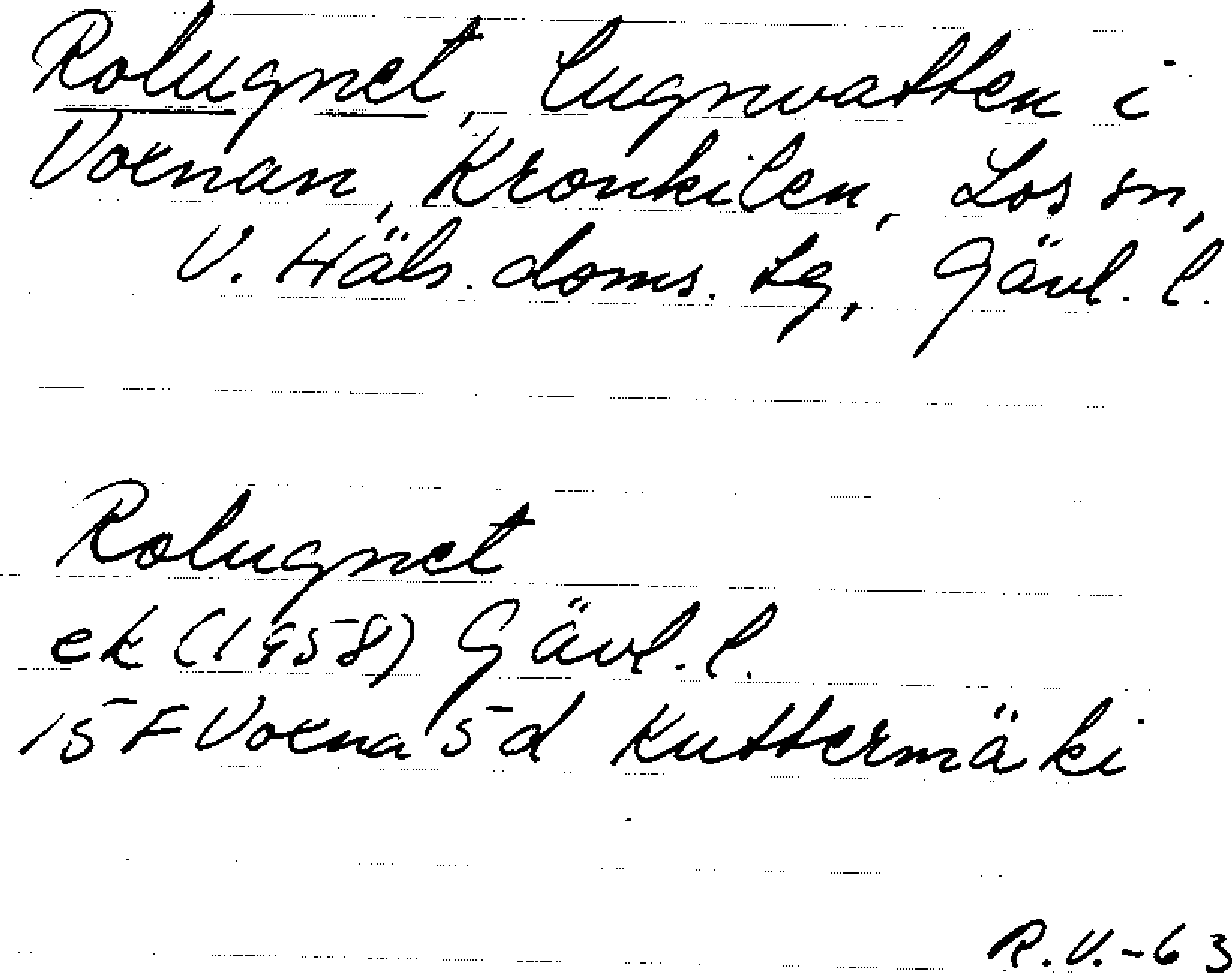 Rolugnet, lugnvatten i
Voxnan, Kronkilen, Los sn,
V. Häls. doms. lg, Gävl. l.
Rolugnet
ek (1958) Gävl. l.
15 F Voxna 5 d Kuttermäki
R.V.-63